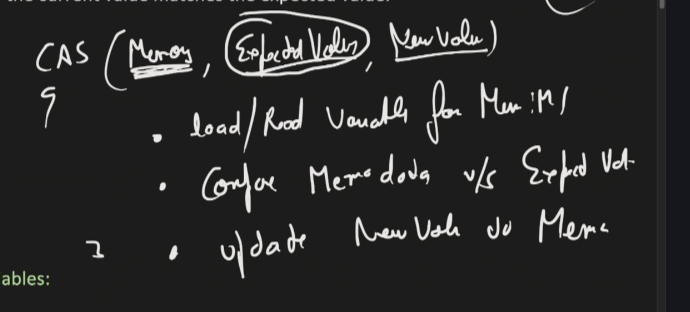 the current value matches the expected value.
CAS (Memory, Expected Value, New Value)
{
• load/Read Variable from Mem: M1
• Compare Memo data v/s Expected Val
} • update New Value to Memo
ables: